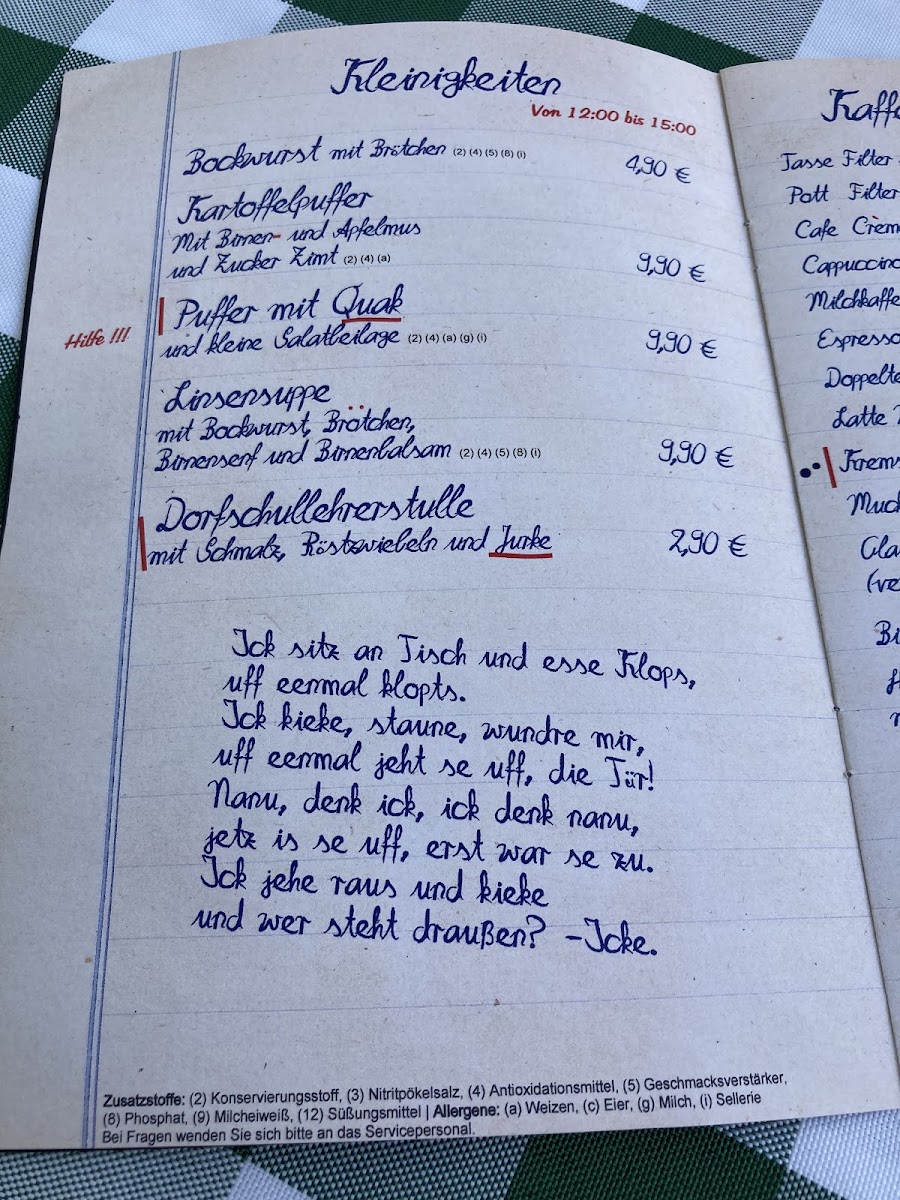 Kleinigkeiten
Von 12:00 bis 15:00
Bockwurst mit Brötchen (2) (4) (5) (8) (i) 4,90 €
Kartoffelpuffer
Mit Birnen- und Apfelmus
und Zucker Zimt (2) (4) (a) 9,90 €
Puffer mit Quak
Hilfe !!! und kleine Salatbeilage (2) (4) (a) (g) (i) 9,90 €
Linsensuppe
mit Bockwurst, Brötchen,
Birnensenf und Birnenbalsam (2) (4) (5) (8) (i) 9,90 €
Dorfschullehrerstulle
mit Schmalz, Röstzwiebeln und Jurke 2,90 €
Ick sitz an Tisch und esse Klops,
uff eenmal klopts.
Ick kieke, staune, wundre mir,
uff eenmal jeht se uff, die Tür!
Nanu, denk ick, ick denk nanu,
jetz is se uff, erst war se zu.
Ick jehe raus und kieke
und wer steht draußen? -Icke.
Zusatzstoffe: (2) Konservierungsstoff, (3) Nitritpökelsalz, (4) Antioxidationsmittel, (5) Geschmacksverstärker,
(8) Phosphat, (9) Milcheiweiß, (12) Süßungsmittel | Allergene: (a) Weizen, (c) Eier, (g) Milch, (i) Sellerie
Bei Fragen wenden Sie sich bitte an das Servicepersonal.
Kaffe
Tasse Filter
Pott Filter
Cafe Crèm
Cappuccino
Milchkaffe
Espresso
Doppelte
Latte
Krems
Muck
Gla
(ve
Bi